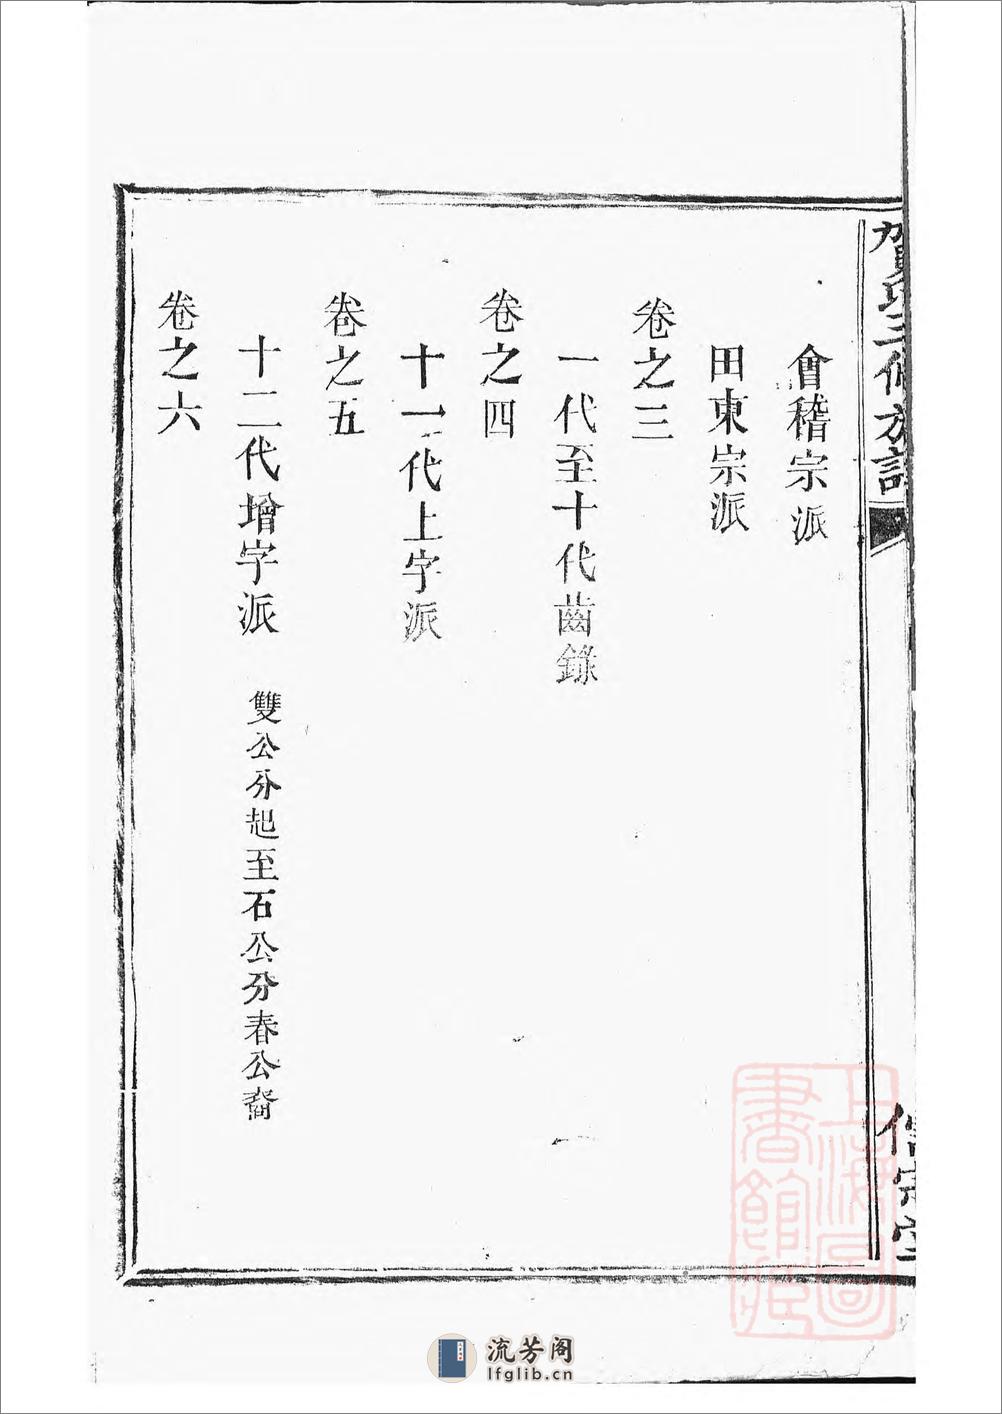 賀氏三修族譜
會稽宗派
田東宗派
卷之三
一代至十代齒錄
卷之四
十一代上字派
卷之五
十二代增字派 雙公分起至石公分春公裔
卷之六
上海圖書館藏
流芳阁
lfglib.cn